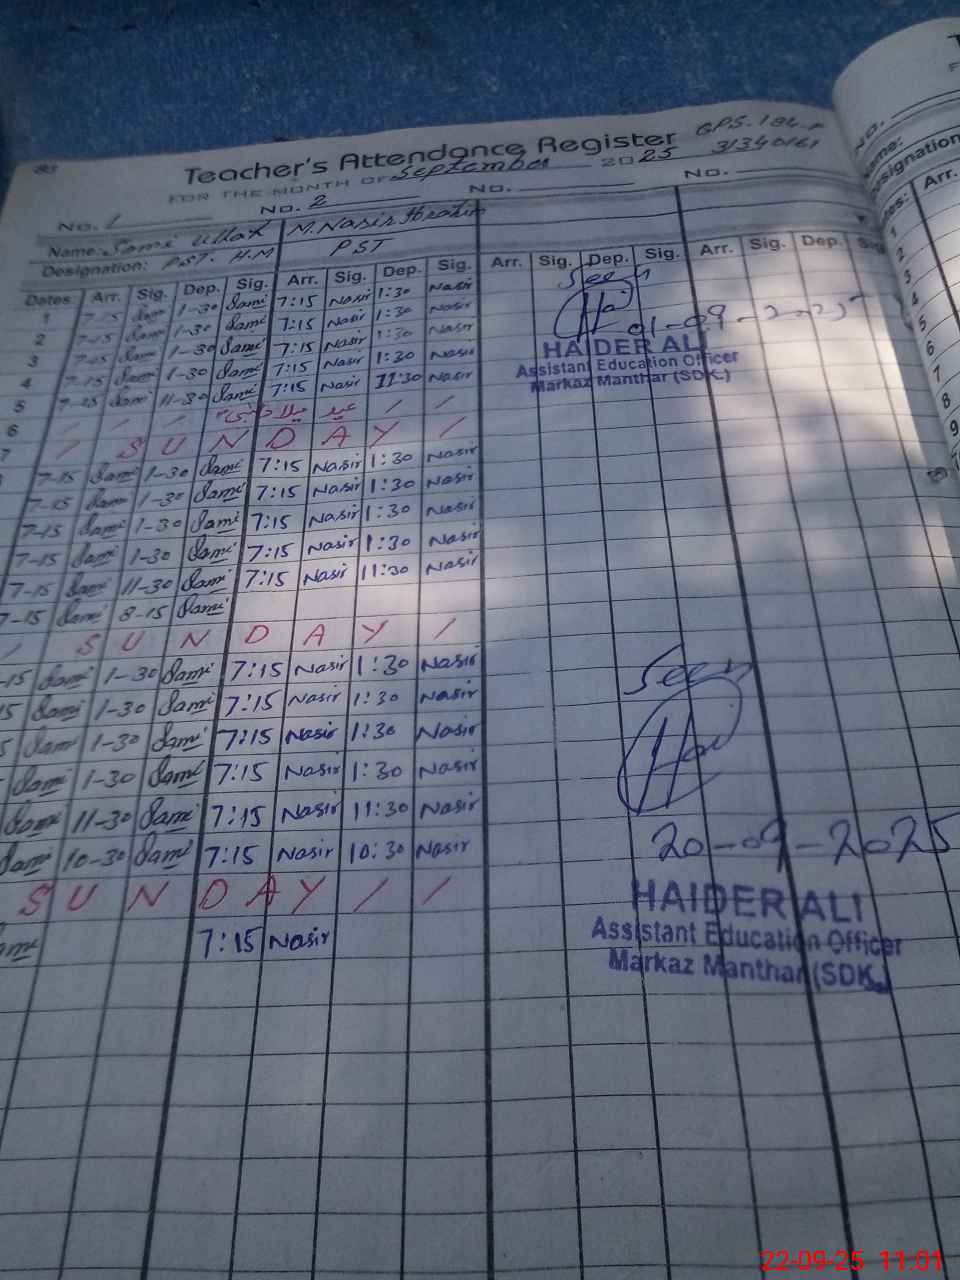 Teacher's Attendance Register
FOR THE MONTH OF September 2025
GPS.184-P
31340161
No. 1 No. 2 No. No.
Name: Sami Ullah M. Nasir Ibrahim
Designation: PST. H.M PST
Dates: Arr. Sig. Dep. Sig. Arr. Sig. Dep. Sig. Arr. Sig. Dep. Sig. Arr. Sig. Dep. Sig
1 7-15 Sami 1-30 Sami 7:15 Nasir 1:30 Nasir
2 7-15 Sami 1-30 Sami 7:15 Nasir 1:30 Nasir
3 7-15 Sami 1-30 Sami 7:15 Nasir 1:30 Nasir
4 7-15 Sami 1-30 Sami 7:15 Nasir 1:30 Nasir
5 7-15 Sami 11-30 Sami 7:15 Nasir 11:30 Nasir
6 / / / عید میلاد النبی / /
7 / S U N D A Y /
7-15 Sami 1-30 Sami 7:15 Nasir 1:30 Nasir
7-15 Sami 1-30 Sami 7:15 Nasir 1:30 Nasir
7-15 Sami 1-30 Sami 7:15 Nasir 1:30 Nasir
7-15 Sami 1-30 Sami 7:15 Nasir 1:30 Nasir
7-15 Sami 11-30 Sami 7:15 Nasir 11:30 Nasir
7-15 Sami 8-15 Sami
/ S U N D A Y /
-15 Sami 1-30 Sami 7:15 Nasir 1:30 Nasir
15 Sami 1-30 Sami 7:15 Nasir 1:30 Nasir
5 Sami 1-30 Sami 7:15 Nasir 1:30 Nasir
Sami 1-30 Sami 7:15 Nasir 1:30 Nasir
Sami 11-30 Sami 7:15 Nasir 11:30 Nasir
Sami 10-30 Sami 7:15 Nasir 10:30 Nasir
S U N D A Y / /
ami 7:15 Nasir
Seen
01-09-2025
HAIDER ALI
Assistant Education Officer
Markaz Manthar (SDK.)
Seen
20-09-2025
HAIDER ALI
Assistant Education Officer
Markaz Manthar (SDK.)
No.
ame:
esignation
tes: Arr.
1
2
3
4
5
6
7
8
9
22-09-25 11:01